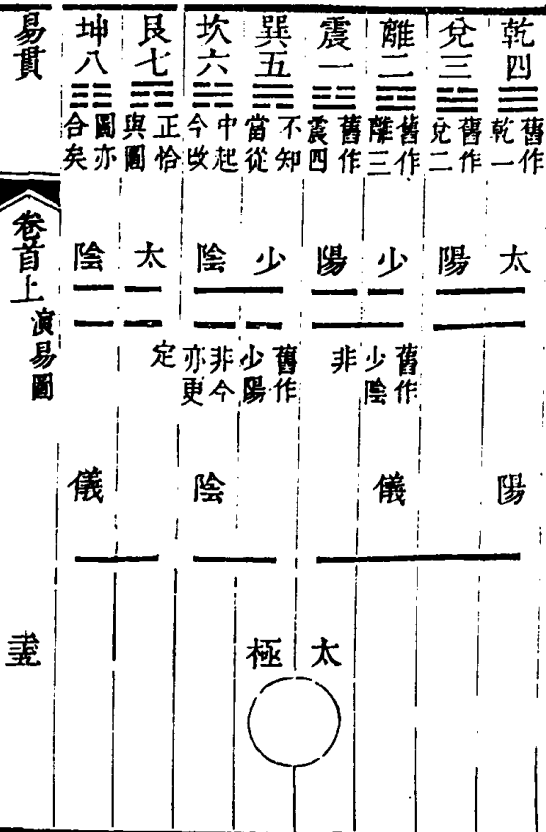 乾四
舊作
乾一
兌三
舊作
兌二
離二
舊作
離三
震一
舊作
震四
巽五
不知
當從
坎六
中起
今改
艮七
正恰
與圖
坤八
圖亦
合矣
太陽
少陽
少陰
太陰
舊作
少陰
非
舊作
少陽
非今
亦更
定
陽儀
陰儀
太極
易貫
卷首上
演易圖